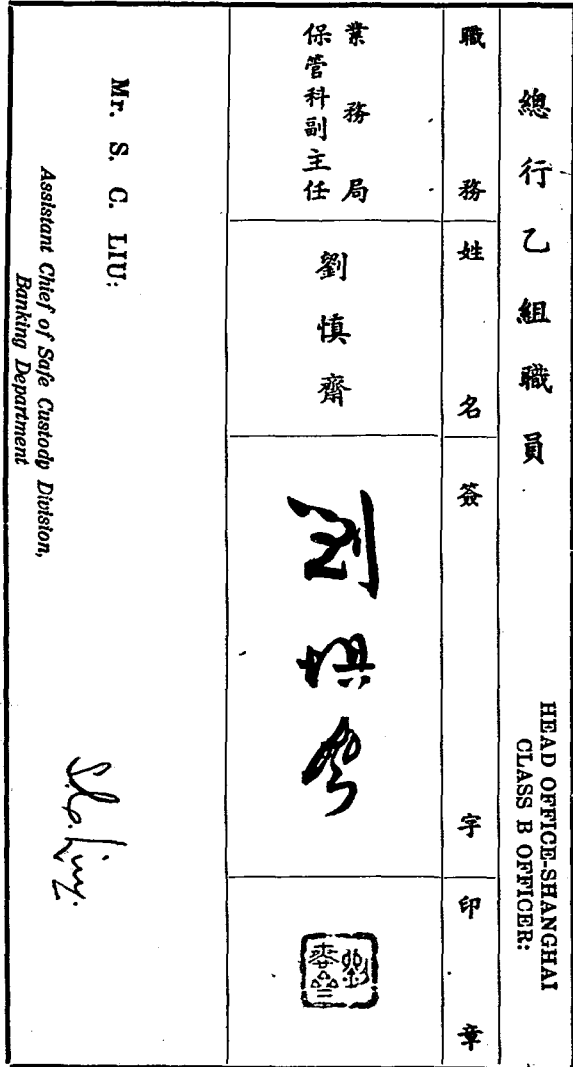 總行乙組職員
HEAD OFFICE-SHANGHAI
CLASS B OFFICER:
職務
姓名
簽字
印章
業務局
保管科副主任
劉慎齋
Mr. S. C. LIU:
Assistant Chief of Safe Custody Division,
Banking Department
S. C. Liu.